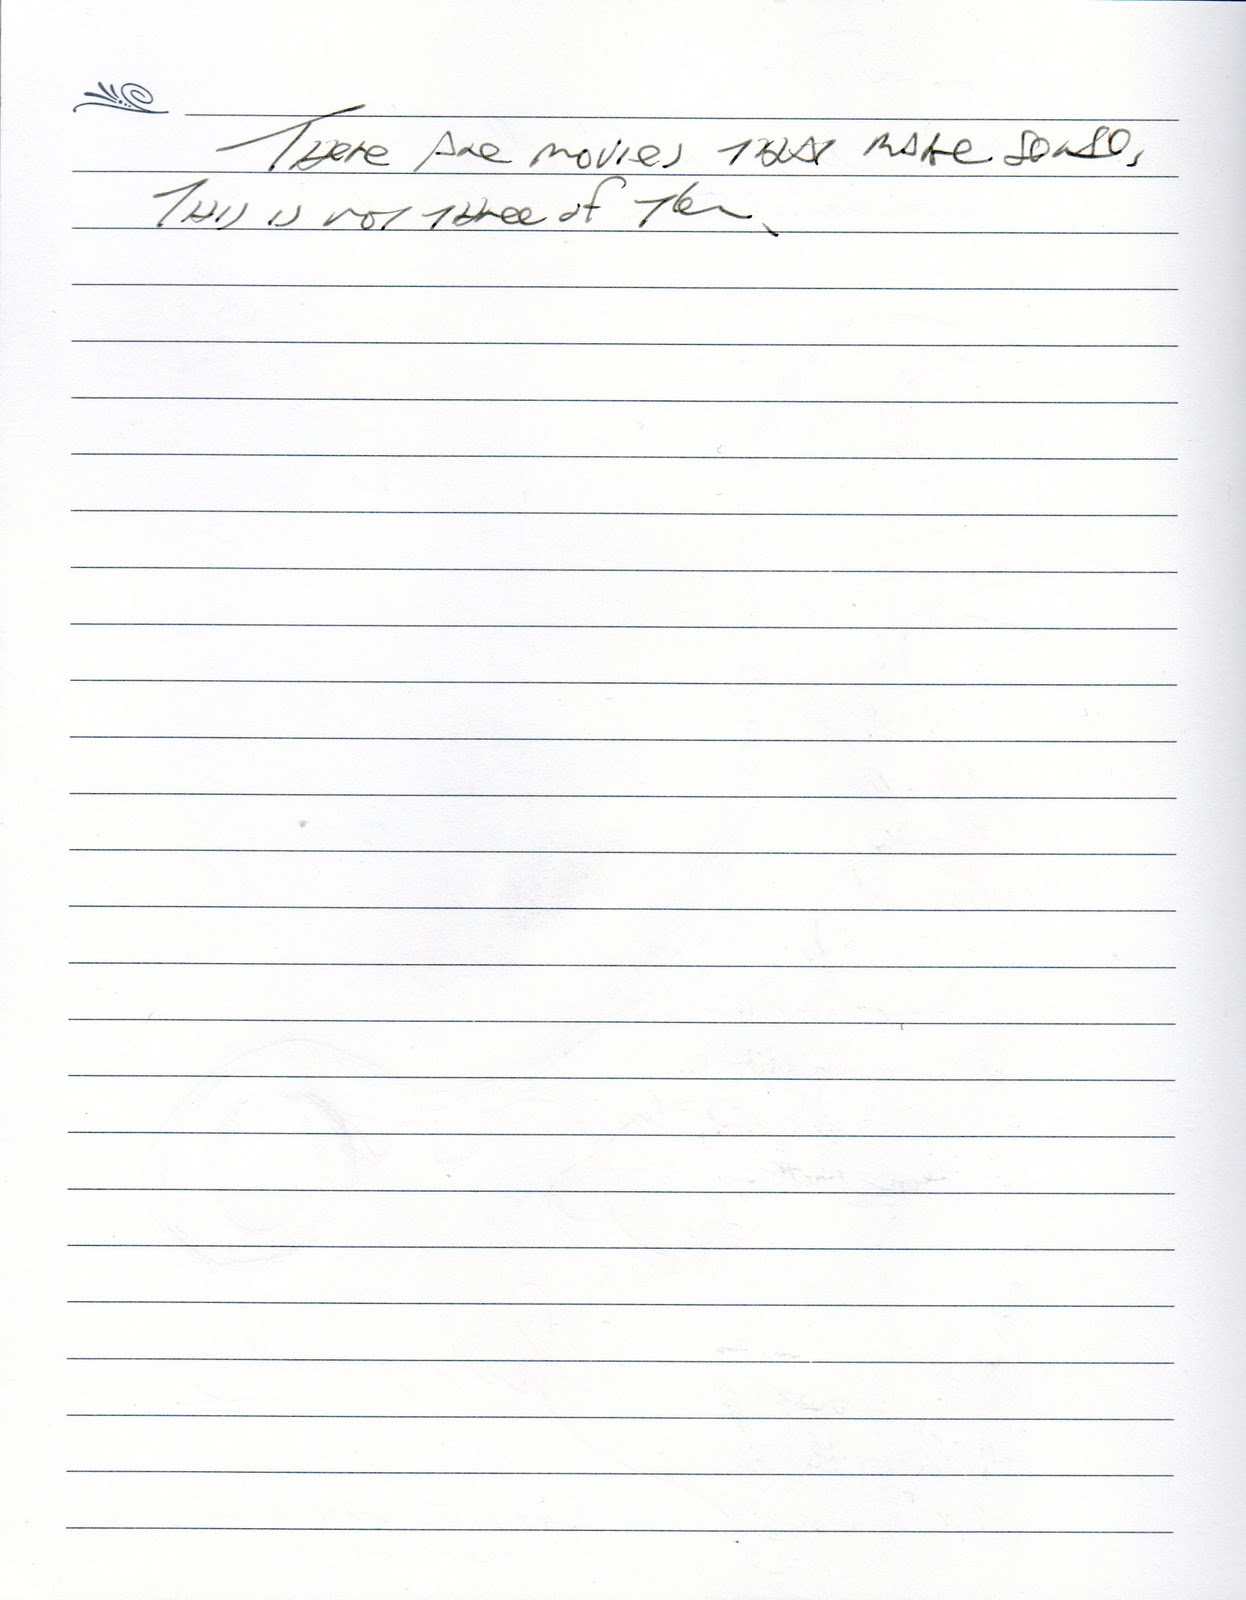 There are movies that make sense,
This is not three of them.